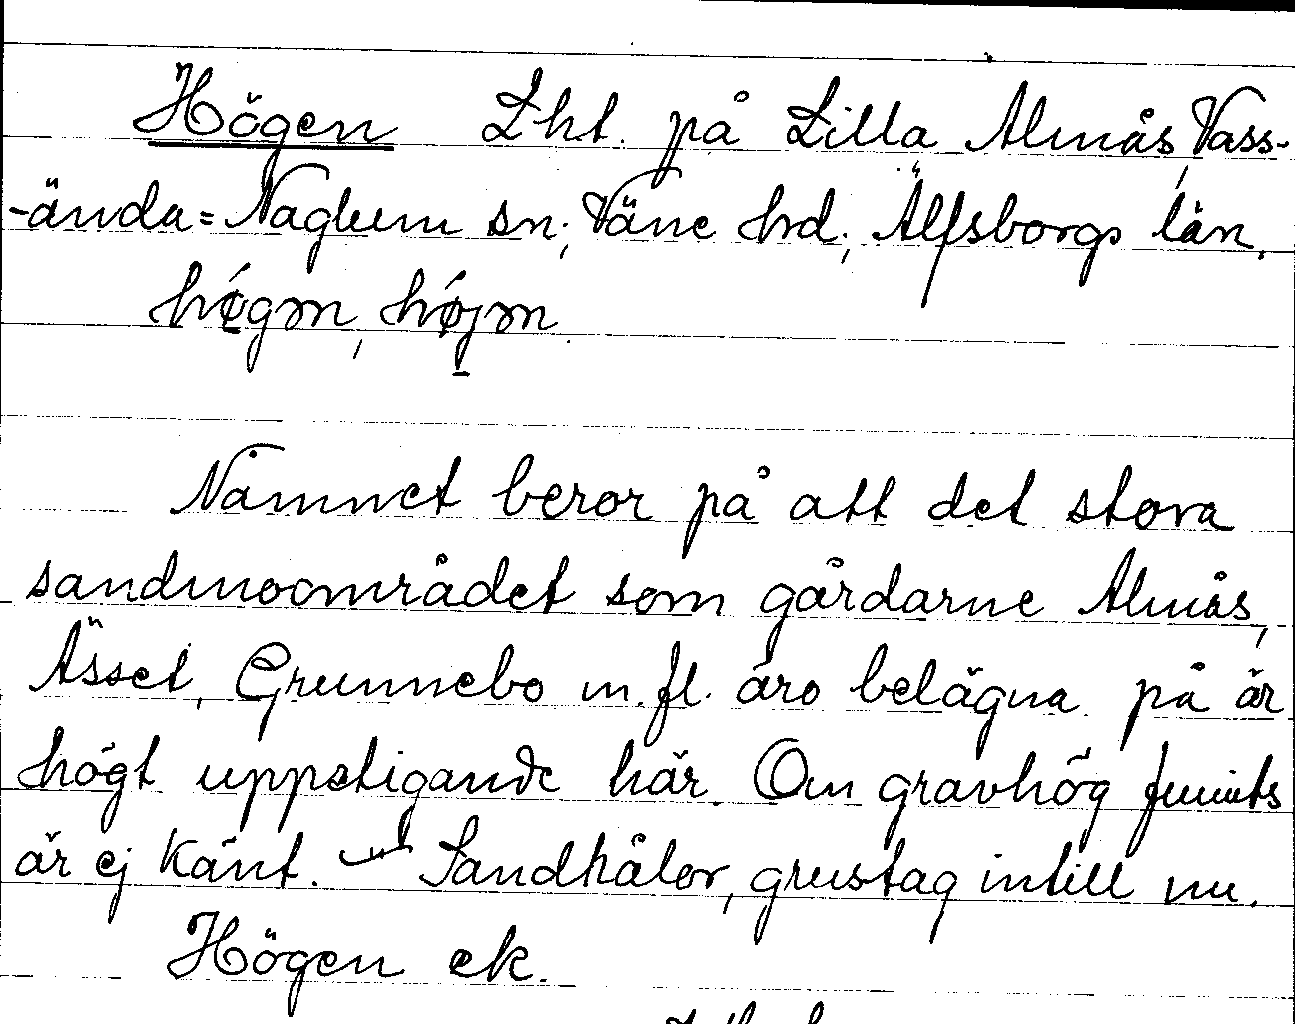 Högen Lht. på Lilla Almås, Vass-
-ända=Naglum sn; Väne hrd; Älfsborgs län.
Namnet beror på att det stora
sandmoområdet som gårdarne Almås,
Åsset, Grunnebo m.fl. äro belägna på är
högt uppstigande här. Om gravhög funnits
är ej känt. — Sandhålor, grustag intill nu.
Högen ek.